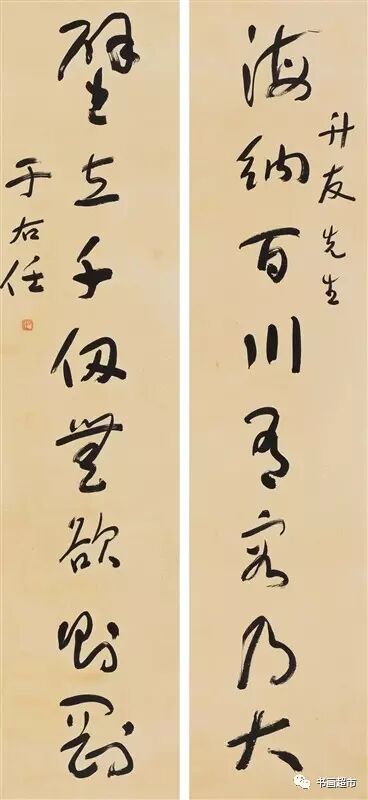 海纳百川有容乃大
升友先生
壁立千仞無欲则刚
于右任
书画超市